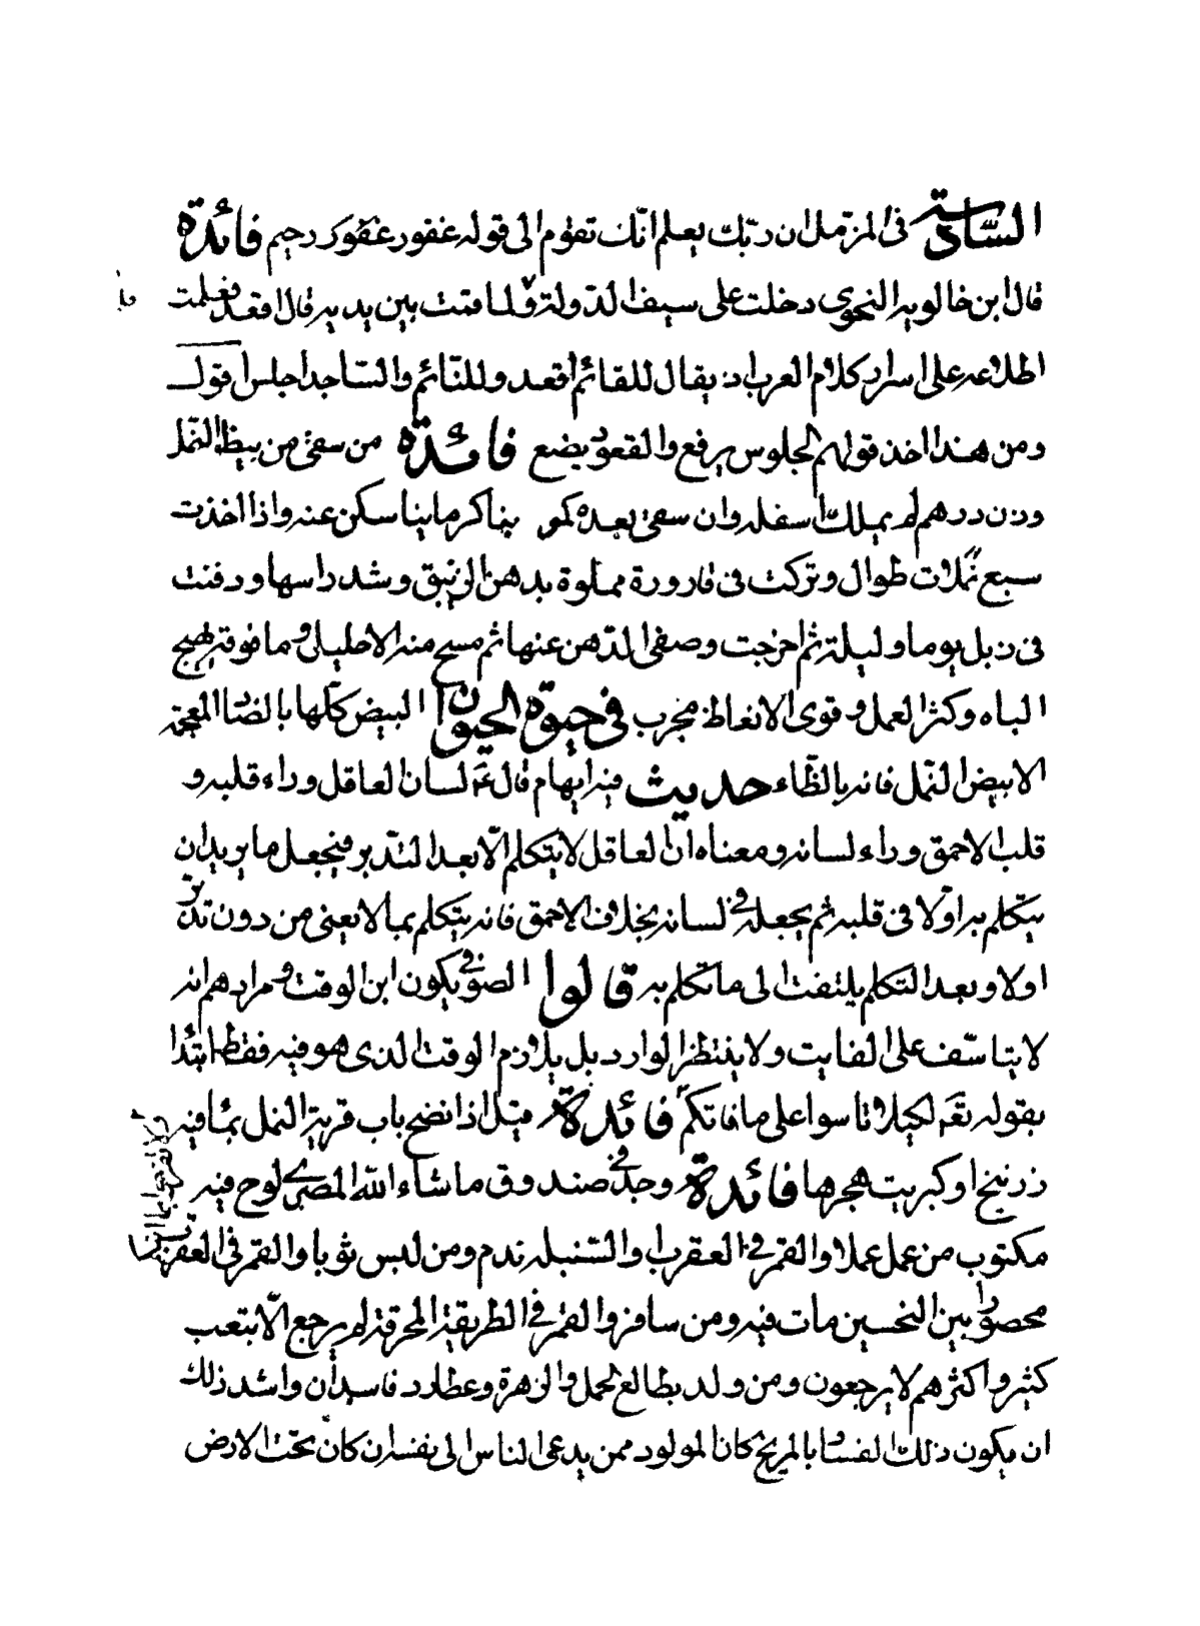 السادسة في المزمل ان ربك يعلم انك تقوم الى قوله غفور غفور رحيم فائدة
قال ابن خالويه النحوي دخلت على سيف الدولة فلما مثلت بين يديه قال اقعد فعلمت
اطلاعه على اسرار كلام العرب اذ يقال للقائم اقعد وللنائم والساجد اجلس اقول
ومن هذا اخذ قولهم الجلوس يرفع والقعود يضع فائدة من سقي من بيظ النمل
وزن درهم لم يملك اسفله وان سقي بعده كمو بناكرمابينا سكن عنه واذا اخذت
سبع نملات طوال وتركت في قارورة مملوة بدهن الزنبق وشد راسها ودفنت
في زبل يوما وليلة ثم اخرجت وصفي الدهن عنها ثم مسح منه الاحليل وما فوقه هيج
الباه وكثر العمل وقوى الانعاظ مجرب في حيوة الحيوان البيض كلها بالضاد المعجمة
الا بيض النمل فانه بالظاء حديث فيه ابهام قال عم لسان العاقل وراء قلبه و
قلب الاحمق وراء لسانه ومعناه ان العاقل لا يتكلم الا بعد التدبر فيجعل ما يريد ان
يتكلم به اولا في قلبه ثم يجعله في لسانه بخلاف الاحمق فانه يتكلم بما لا يعنى من دون تدبر
اولا وبعد التكلم يلتفت الى ما تكلم به قالوا الصوفي يكون ابن الوقت ومرادهم انه
لا يتاسف على الفايت ولا ينتظر الوارد بل يلازم الوقت الذي هو فيه فقط ابتدا
بقوله تعم لكيلا تاسوا على ما فاتكم فائدة قيل اذا نضح باب قرية النمل بما فيه
زرنيخ او كبريت هجرها فائدة وجد في صندوق ما شاء الله المصري لوح فيه
مكتوب من عمل عملا والقمر في العقرب او السنبله ندم ومن لبس ثوبا والقمر في العقرب
محصور بين النحسين مات فيه ومن سافر والقمر في الطريقة المحرقة لم يرجع الا بتعب
كثير واكثرهم لا يرجعون ومن ولد بطالع الحمل والزهرة وعطارد فاسدان واشد ذلك
ان يكون ذلك الفساد بالمريخ كان المولود ممن يدعى الناس الى نفسه ان كان تحت الارض